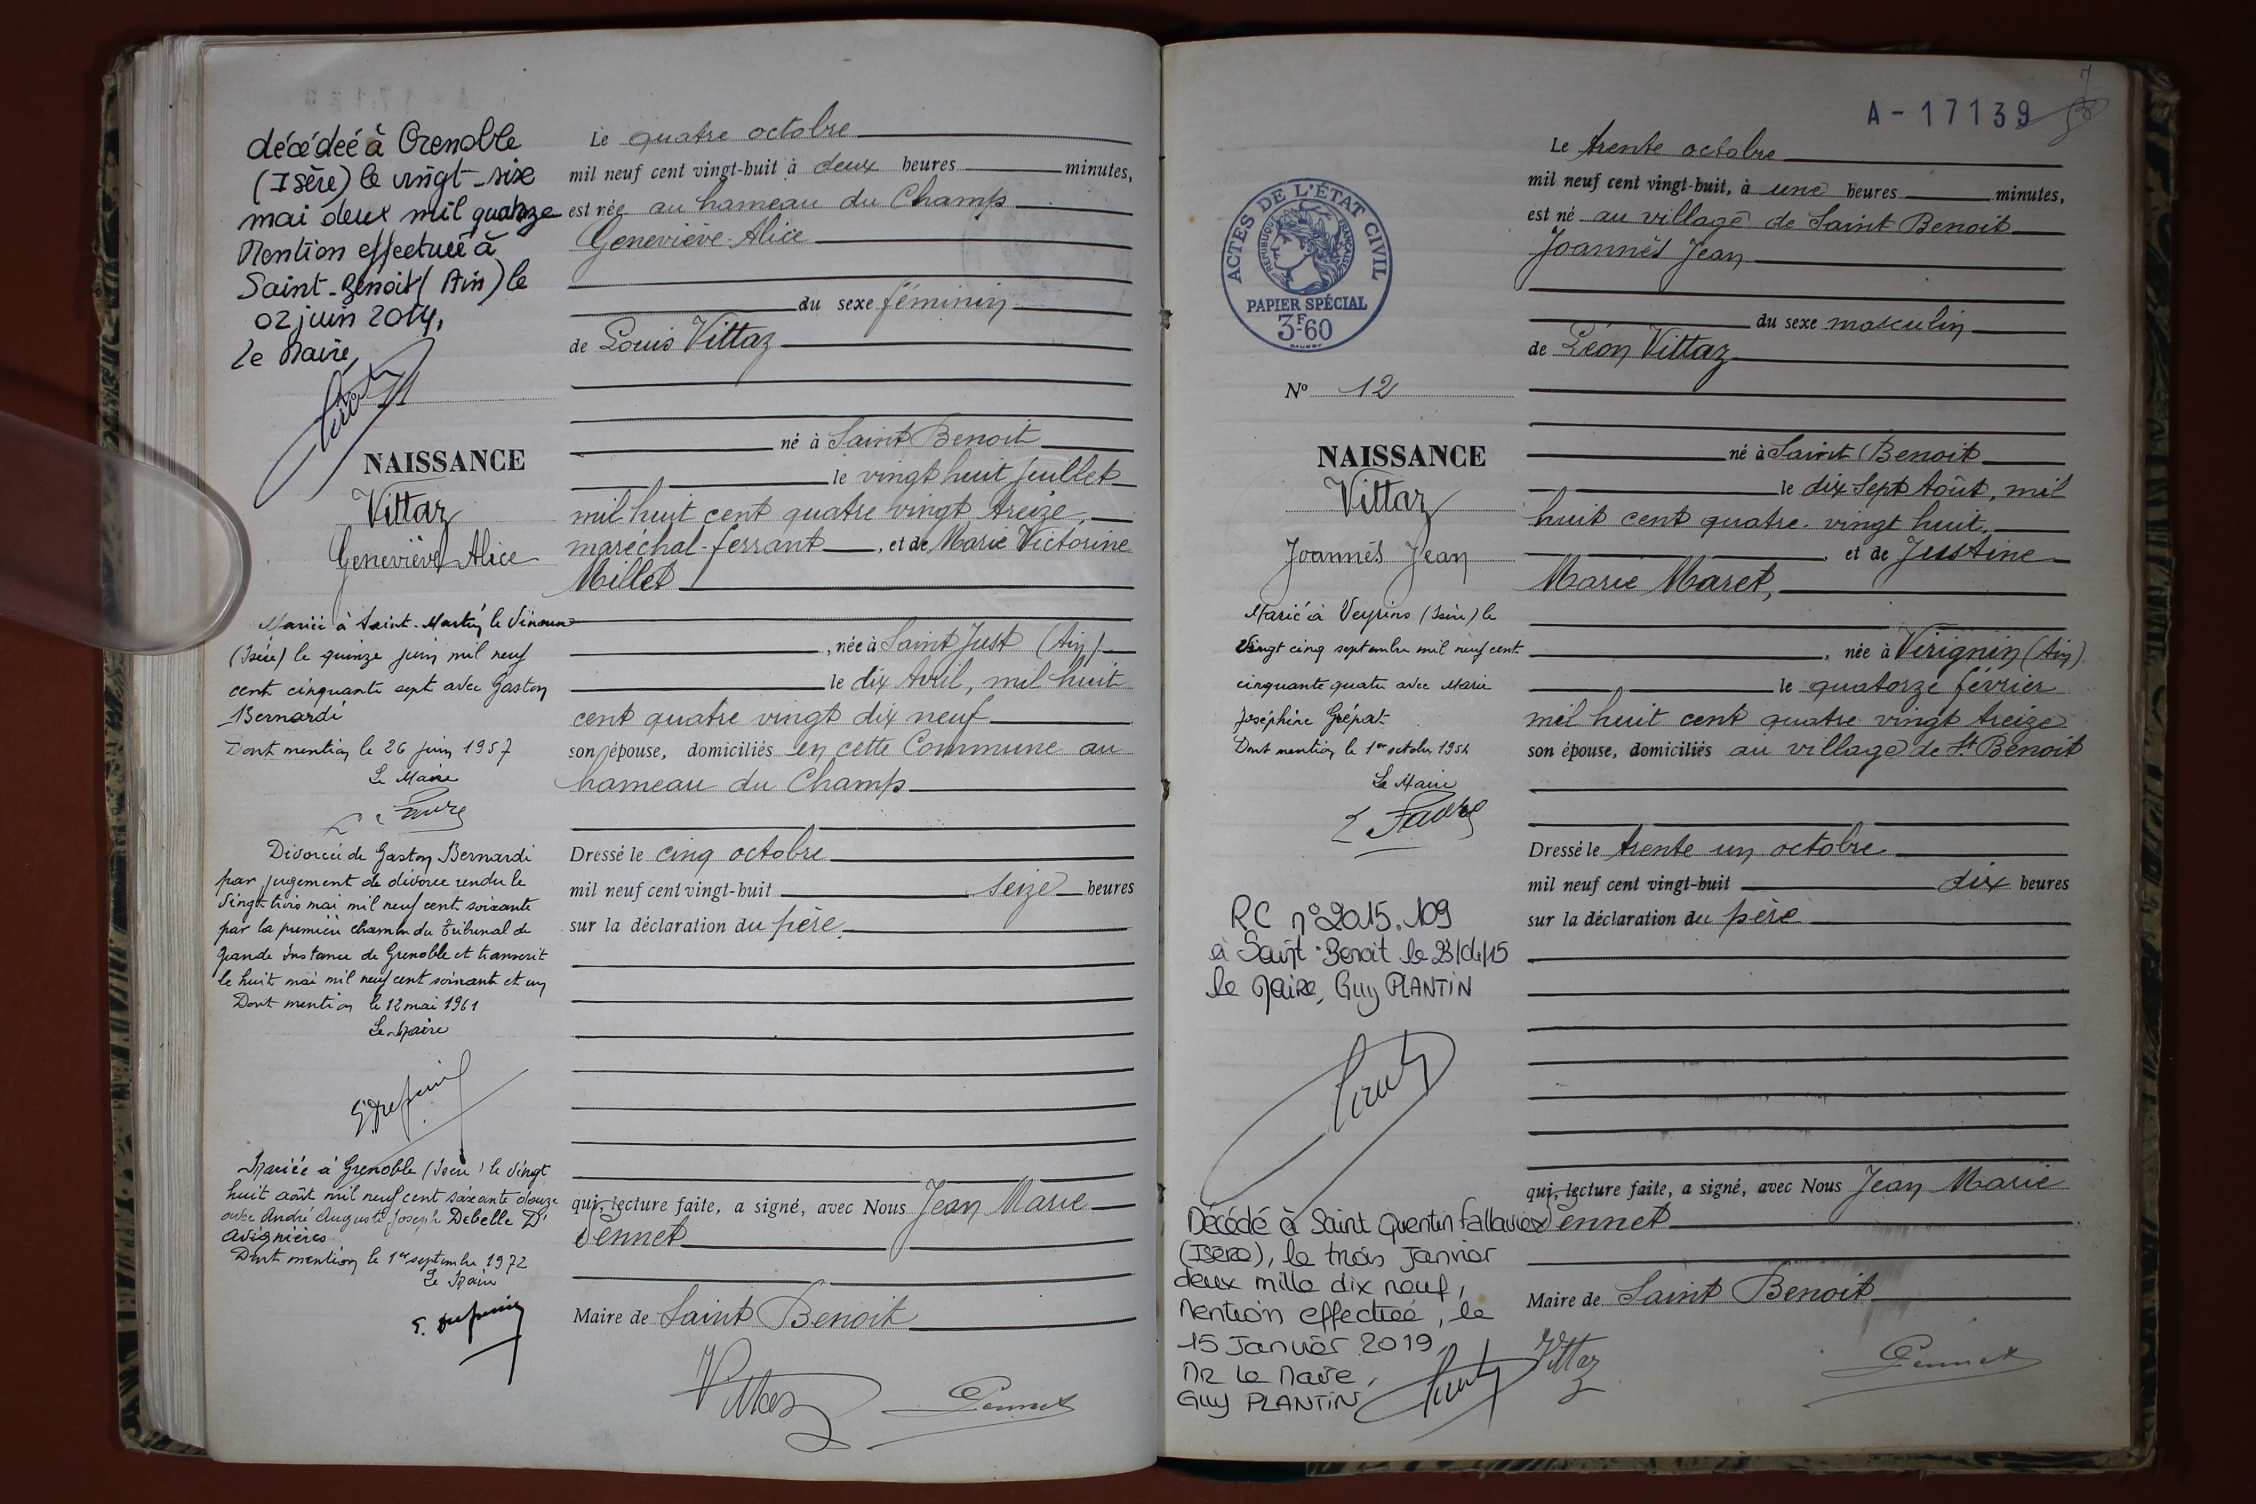 décédeé à Grenoble
(Isère) le vingt-six
mai deux mil quatorze
Mention effectuée à
Saint-Benoit (Ain) le
02 juin 2014,
le Maire,
11
NAISSANCE
Vittaz
Geneviève Alice
Mariée à Saint-Martin le Vinoux
(Isère) le quinze juin mil neuf
cent cinquante sept avec Gaston
Bernardi
Dont mention le 26 juin 1957
Le Maire
Divorcée de Gaston Bernardi
par jugement de divorce rendu le
vingt trois mai mil neuf cent soixante
par la première chambre du Tribunal de
Grande Instance de Grenoble et transcrit
le huit mai mil neuf cent soixante et un
Dont mention le 12 mai 1961
Le Maire
Mariée à Grenoble (Isère) le vingt
huit août mil neuf cent soixante douze
avec André Auguste Joseph Debelle D'
Avignières
Dont mention le 1er septembre 1972
Le Maire
Le quatre octobre
mil neuf cent vingt-huit à deux heures minutes,
est née au hameau du Champ
Geneviève Alice
du sexe féminin
de Louis Vittaz
né à Saint Benoit
le vingt huit Juillet
mil huit cent quatre vingt treize,
maréchal-ferrant, et de Marie Victorine
Millet
, née à Saint Just (Ain)
le dix Avril, mil huit
cent quatre vingt dix neuf
son épouse, domiciliés en cette Commune au
hameau du Champ
Dressé le cinq octobre
mil neuf cent vingt-huit seize heures
sur la déclaration du père
qui, lecture faite, a signé, avec Nous Jean Marie
Pennet
Maire de Saint Benoit
Vittaz Pennet
A-17139
ACTES DE L'ÉTAT CIVIL
RÉPUBLIQUE FRANÇAISE
PAPIER SPÉCIAL
3F-60
N° 12
NAISSANCE
Vittaz
Joannès Jean
Marié à Veyrins (Isère) le
vingt cinq septembre mil neuf cent
cinquante quatre avec Marie
Joséphine Grépat
Dont mention le 1er octobre 1954
Le Maire
L Favre
RC n°2015.109
à Saint-Benoit le 23/04/15
le Maire, Guy PLANTIN
Décédé à Saint Quentin Fallavier
(Isère), le trois Janvier
deux mille dix neuf,
Mention effectuée, le
15 Janvier 2019,
Mr Le Maire,
Guy PLANTIN
Le trente octobre
mil neuf cent vingt-huit, à une heures minutes,
est né au village de Saint Benoit
Joannès Jean
du sexe masculin
de Léon Vittaz
né à Saint Benoit
le dix Sept Août, mil
huit cent quatre-vingt huit,
et de Justine
Marie Maret,
, née à Virignin (Ain)
le quatorze février
mil huit cent quatre vingt treize
son épouse, domiciliés au village de St Benoit
Dressé le trente un octobre
mil neuf cent vingt-huit dix heures
sur la déclaration du père
qui, lecture faite, a signé, avec Nous Jean Marie
Pennet
Maire de Saint Benoit
Vittaz Pennet